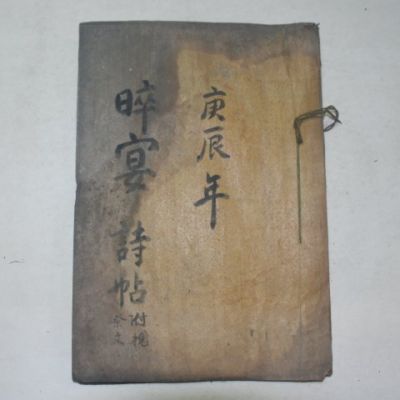 庚辰年
晬宴詩帖
附挽
祭文